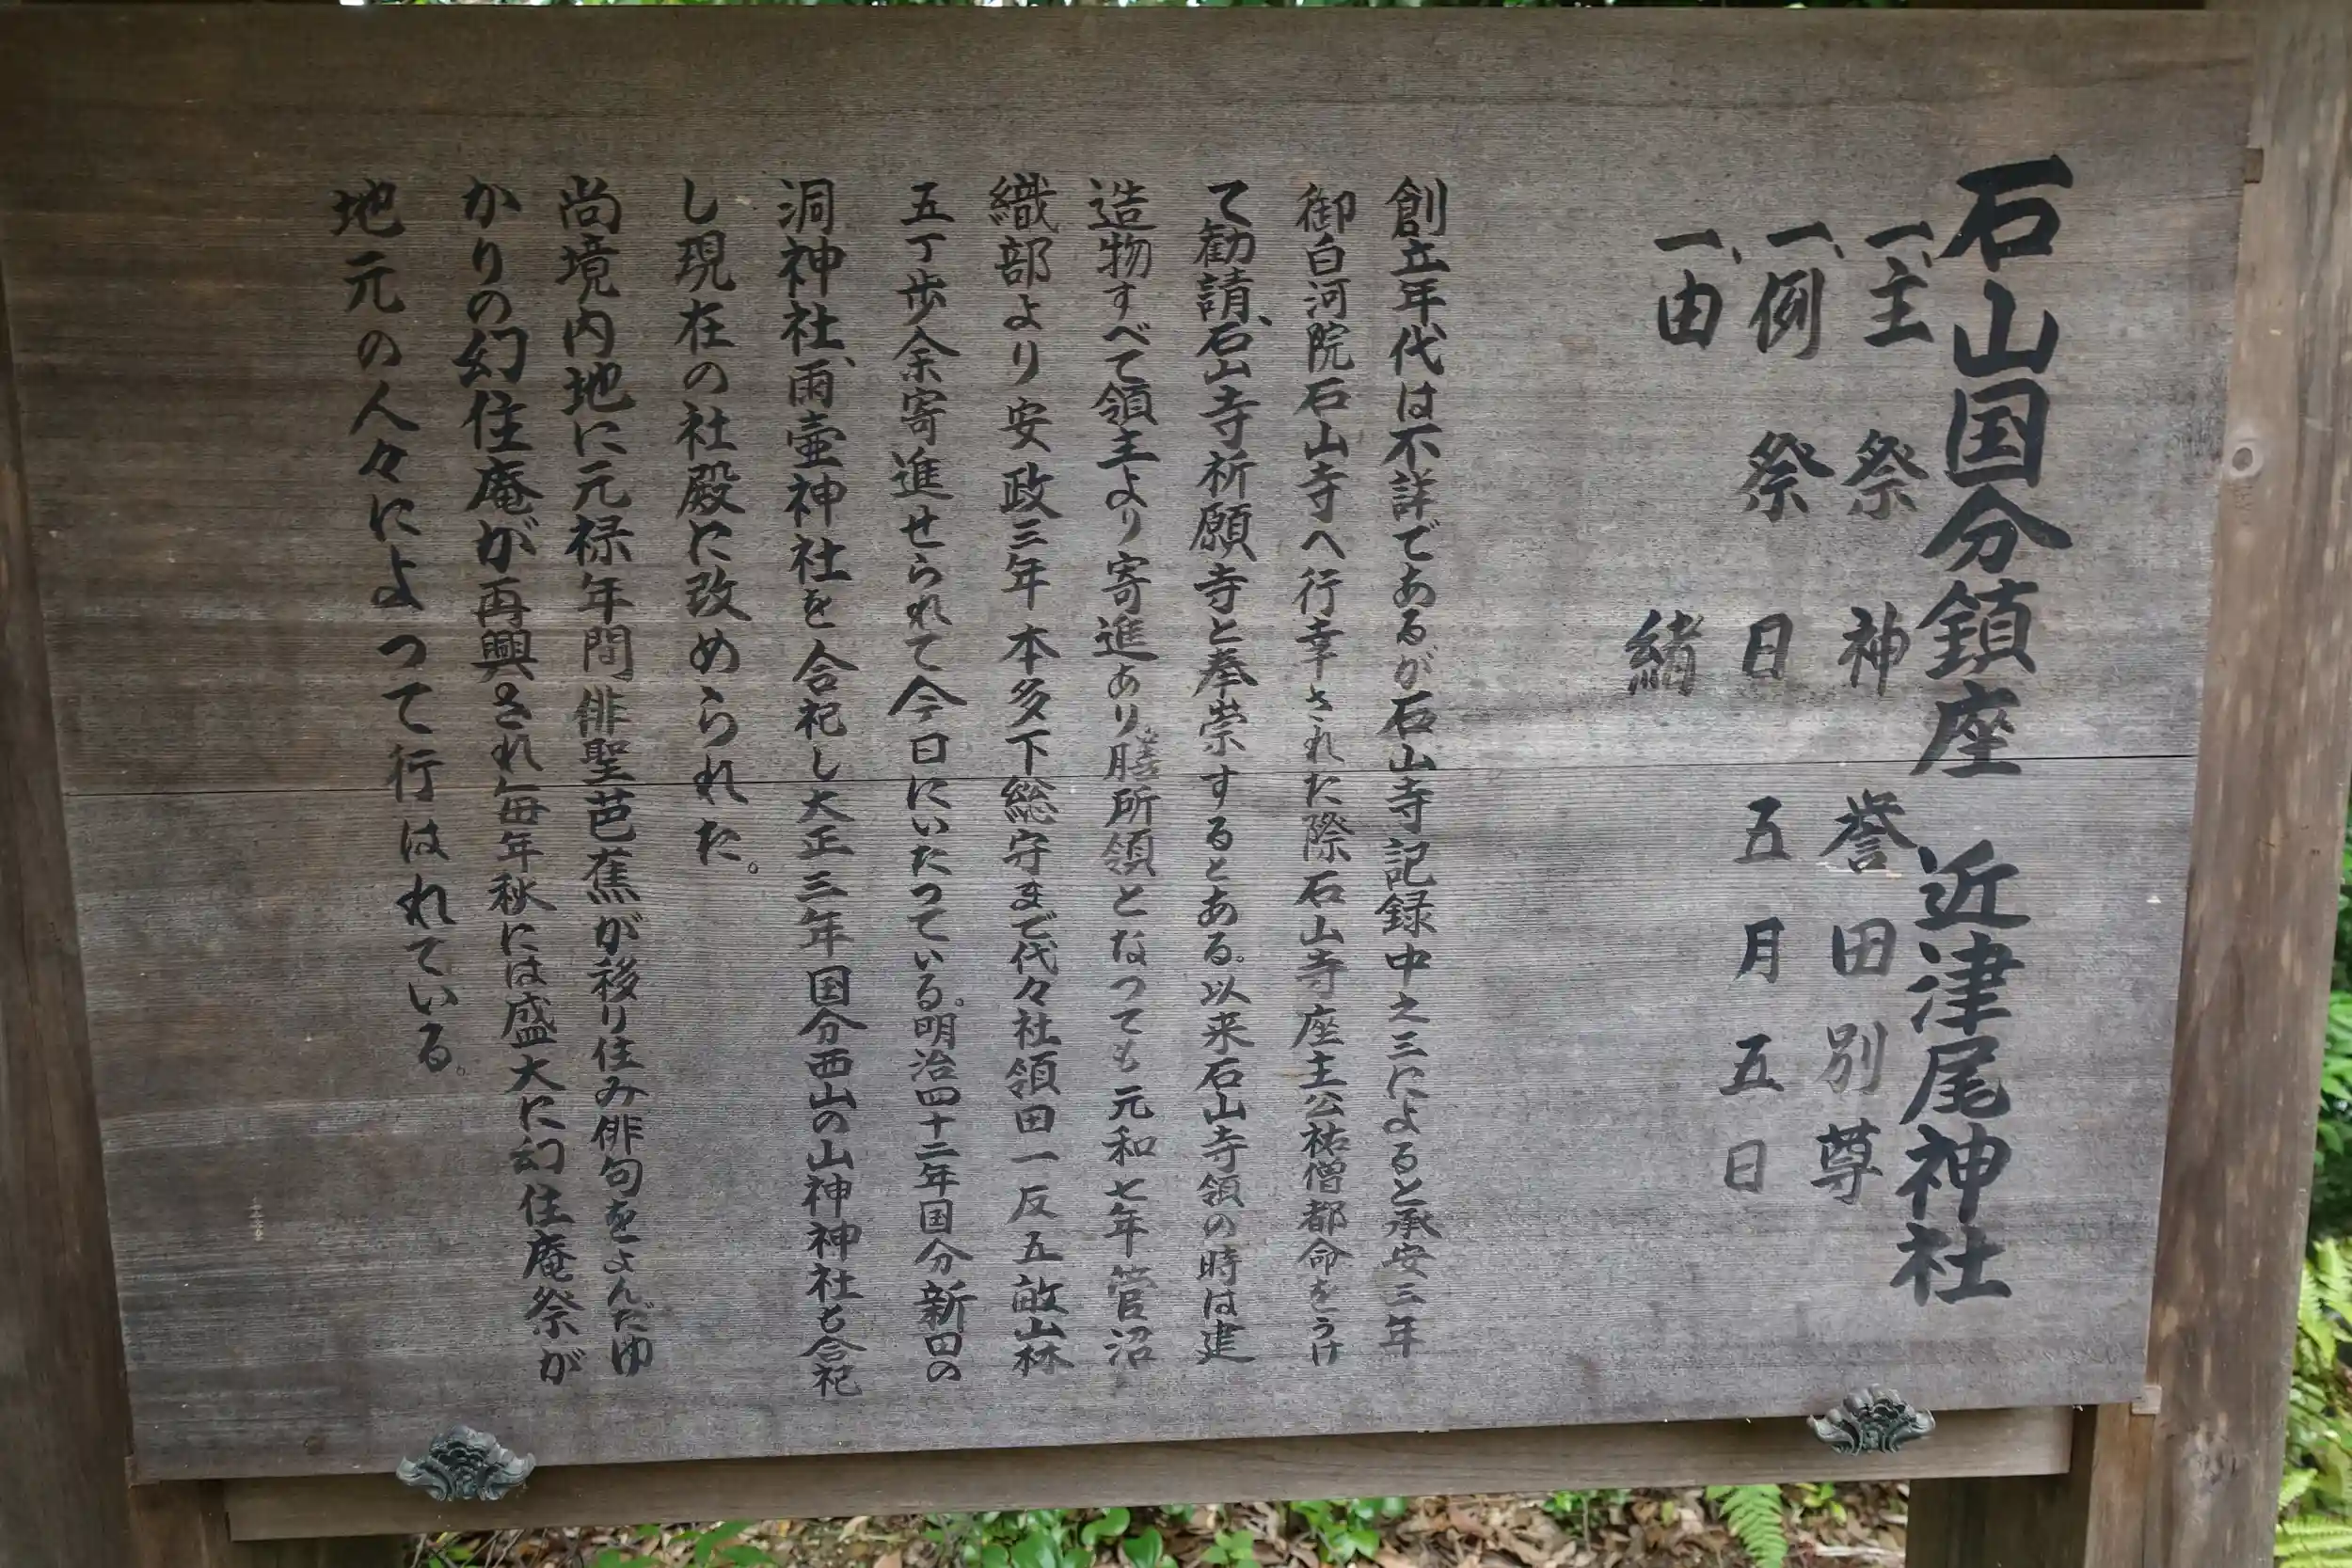 石山国分鎮座 近津尾神社
一、主祭神 誉田別尊
一、例祭日 五月五日
一、由緒
創立年代は不詳であるが石山寺記録中之三によると承安三年
御白河院石山寺へ行幸された際石山寺座主公祐僧都命をうけ
て勧請、石山寺祈願寺と奉崇するとある。以来石山寺領の時は建
造物すべて領主より寄進あり。膳所領となつても元和七年管沼
織部より安政三年本多下総守まで代々社領田一反五畝山林
五丁歩余寄進せられて今日にいたつている。明治四十二年国分新田の
洞神社、雨壷神社を合祀し大正三年国分西山の山神神社も合祀
し現在の社殿に改められた。
尚境内地に元禄年間俳聖芭蕉が移り住み俳句をよんだゆ
かりの幻住庵が再興され毎年秋には盛大に幻住庵祭が
地元の人々によつて行はれている。